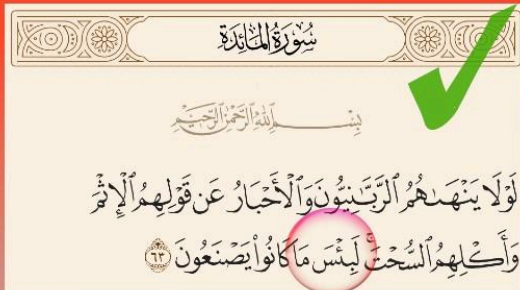 سُورَةُ المَائِدَةِ
بِسْمِ ٱللَّهِ ٱلرَّحْمَٰنِ ٱلرَّحِيمِ
لَوْلَا يَنْهَىٰهُمُ ٱلرَّبَّٰنِيُّونَ وَٱلْأَحْبَارُ عَن قَوْلِهِمُ ٱلْإِثْمَ
وَأَكْلِهِمُ ٱلسُّحْتَۚ لَبِئْسَ مَا كَانُوا۟ يَصْنَعُونَ ٦٣